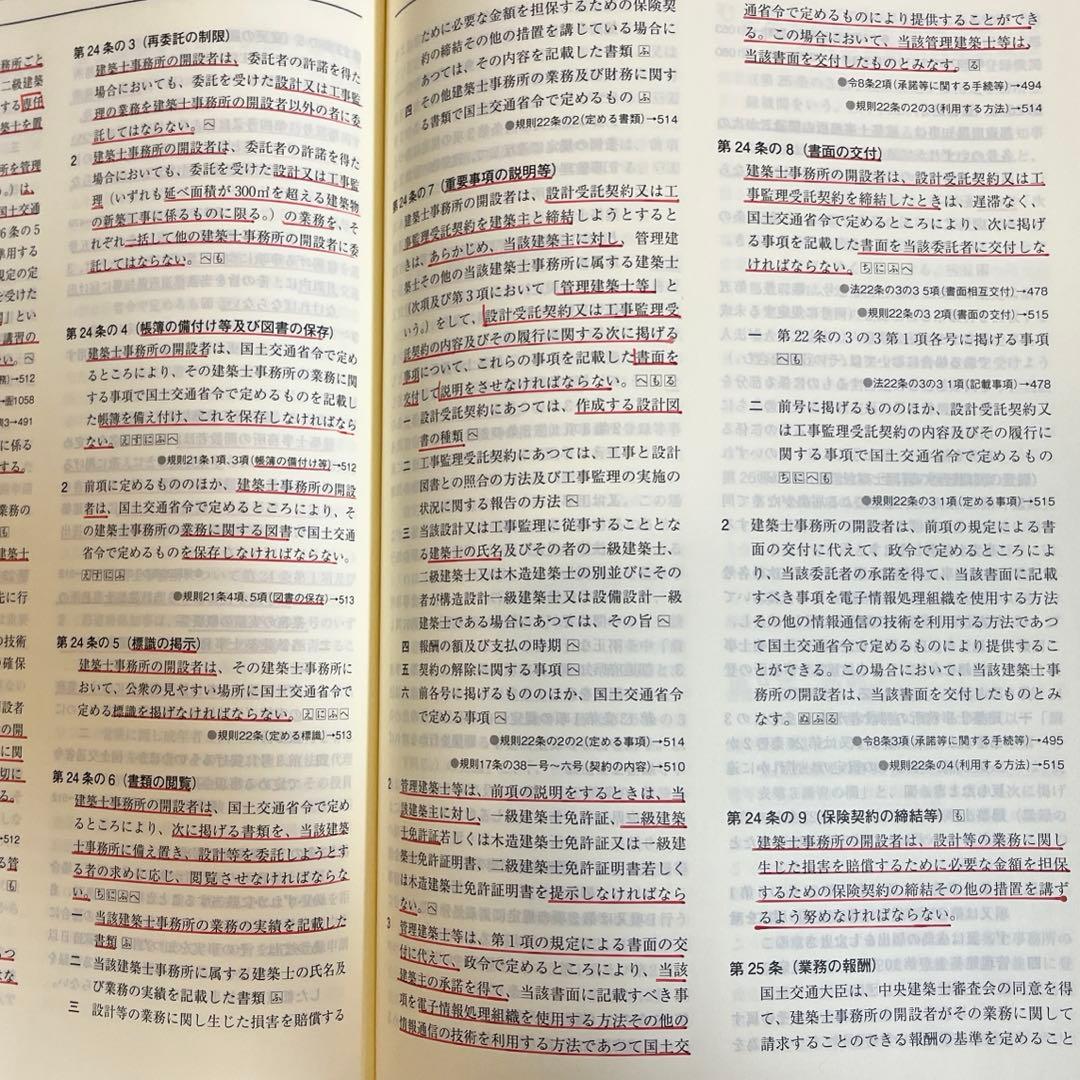 務所ごと
二級建築
する専任
築士を置
所を管理
。)は、
国土交通
6条の5
準用する
規定の定
を受けた
」とい
講習の
い。
→512
→面1058
→491
に係る
する。
業務の
建築士
先に行
の技術
の確保
設者
の開
に関
切に
る。
→512
る管
第24条の3（再委託の制限）
建築士事務所の開設者は、委託者の許諾を得た
場合においても、委託を受けた設計又は工事監
理の業務を建築士事務所の開設者以外の者に委
託してはならない。へ
2 建築士事務所の開設者は、委託者の許諾を得た
場合においても、委託を受けた設計又は工事監
理（いずれも延べ面積が300㎡を超える建築物
の新築工事に係るものに限る。）の業務を、そ
れぞれ一括して他の建築士事務所の開設者に委
託してはならない。へも
第24条の4（帳簿の備付け等及び図書の保存）
建築士事務所の開設者は、国土交通省令で定め
るところにより、その建築士事務所の業務に関
する事項で国土交通省令で定めるものを記載し
た帳簿を備え付け、これを保存しなければなら
ない。えすにふへ
●規則21条1項、3項（帳簿の備付け等）→512
2 前項に定めるもののほか、建築士事務所の開設
者は、国土交通省令で定めるところにより、そ
の建築士事務所の業務に関する図書で国土交通
省令で定めるものを保存しなければならない。
えすにふ
●規則21条4項、5項（図書の保存）→513
第24条の5（標識の掲示）
建築士事務所の開設者は、その建築士事務所に
おいて、公衆の見やすい場所に国土交通省令で
定める標識を掲げなければならない。えにふへ
●規則22条（定める標識）→513
第24条の6（書類の閲覧）
建築士事務所の開設者は、国土交通省令で定め
るところにより、次に掲げる書類を、当該建築
士事務所に備え置き、設計等を委託しようとす
る者の求めに応じ、閲覧させなければならな
い。ちにふへ
一 当該建築士事務所の業務の実績を記載した
書類ふ
二 当該建築士事務所に属する建築士の氏名及
び業務の実績を記載した書類ふ
三 設計等の業務に関し生じた損害を賠償する
ために必要な金額を担保するための保険契
約の締結その他の措置を講じている場合に
あつては、その内容を記載した書類ふ
四 その他建築士事務所の業務及び財務に関す
る書類で国土交通省令で定めるものふ
●規則22条の2（定める書類）→514
第24条の7（重要事項の説明等）
建築士事務所の開設者は、設計受託契約又は工
事監理受託契約を建築主と締結しようとすると
きは、あらかじめ、当該建築主に対し、管理建
築士その他の当該建築士事務所に属する建築士
（次項及び第3項において「管理建築士等」と
いう。）をして、設計受託契約又は工事監理受
託契約の内容及びその履行に関する次に掲げる
事項について、これらの事項を記載した書面を
交付して説明をさせなければならない。へもる
一 設計受託契約にあつては、作成する設計図
書の種類へ
二 工事監理受託契約にあつては、工事と設計
図書との照合の方法及び工事監理の実施の
状況に関する報告の方法へ
三 当該設計又は工事監理に従事することとな
る建築士の氏名及びその者の一級建築士、
二級建築士又は木造建築士の別並びにその
者が構造設計一級建築士又は設備設計一級
建築士である場合にあつては、その旨へ
四 報酬の額及び支払の時期へ
五 契約の解除に関する事項へ
六 前各号に掲げるもののほか、国土交通省令
で定める事項へ
●規則22条の2の2（定める事項）→514
●規則17条の38一号～六号（契約の内容）→510
2 管理建築士等は、前項の説明をするときは、当
該建築主に対し、一級建築士免許証、二級建築
士免許証若しくは木造建築士免許証又は一級建
築士免許証明書、二級建築士免許証明書若しく
は木造建築士免許証明書を提示しなければなら
ない。へ
3 管理建築士等は、第1項の規定による書面の交
付に代えて、政令で定めるところにより、当該
建築主の承諾を得て、当該書面に記載すべき事
項を電子情報処理組織を使用する方法その他の
情報通信の技術を利用する方法であつて国土交
通省令で定めるものにより提供することができ
る。この場合において、当該管理建築士等は、
当該書面を交付したものとみなす。る
●令8条2項（承諾等に関する手続等）→494
●規則22条の2の3（利用する方法）→514
第24条の8（書面の交付）
建築士事務所の開設者は、設計受託契約又は工
事監理受託契約を締結したときは、遅滞なく、
国土交通省令で定めるところにより、次に掲げ
る事項を記載した書面を当該委託者に交付しな
ければならない。ちにふへ
●法22条の3の3 5項（書面相互交付）→478
●規則22条の3 2項（書面の交付）→515
一 第22条の3の3第1項各号に掲げる事項
へも
●法22条の3の3 1項（記載事項）→478
二 前号に掲げるもののほか、設計受託契約又
は工事監理受託契約の内容及びその履行に
関する事項で国土交通省令で定めるもの
ちにへも
●規則22条の3 1項（定める事項）→515
2 建築士事務所の開設者は、前項の規定による書
面の交付に代えて、政令で定めるところによ
り、当該委託者の承諾を得て、当該書面に記載
すべき事項を電子情報処理組織を使用する方法
その他の情報通信の技術を利用する方法であつ
て国土交通省令で定めるものにより提供するこ
とができる。この場合において、当該建築士事
務所の開設者は、当該書面を交付したものとみ
なす。ぬふる
●令8条3項（承諾等に関する手続等）→495
●規則22条の4（利用する方法）→515
第24条の9（保険契約の締結等）も
建築士事務所の開設者は、設計等の業務に関し
生じた損害を賠償するために必要な金額を担保
するための保険契約の締結その他の措置を講ず
るよう努めなければならない。
第25条（業務の報酬）
国土交通大臣は、中央建築士審査会の同意を得
て、建築士事務所の開設者がその業務に関して
請求することのできる報酬の基準を定めること